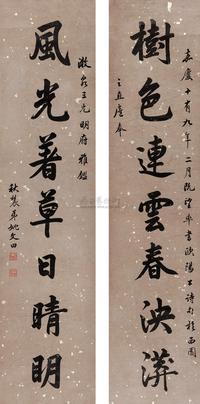 樹色連雲春泱漭
風光著草日晴明
嘉慶十有九年二月既望率書歐陽公詩句於西園
之直廬奉
淑泉三兄明府雅鑑
秋農弟姚文田